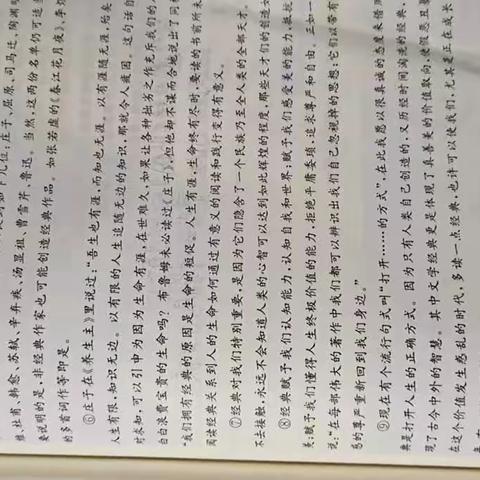 到如下几位：庄子、屈原、司马迁、陶渊明
维、杜甫、韩愈、苏轼、辛弃疾、汤显祖、曹雪芹、鲁迅。当然，这两份名单仍可
要说明的是，非经典作家也可能创造经典作品。如张若虚的《春江花月夜》、李
的多首词作等即是。
⑥庄子在《养生主》里说过：“吾生也有涯，而知也无涯。以有涯随无涯，殆矣
人生有限，知识无边。以有限的人生追随无边的知识，那就令人疲困。这句话自
对求知，可以引申为因为生命有涯，在世难久，如果让各种拙劣之作充斥我们的
白白浪费宝贵的生命吗？布鲁姆未必读过《庄子》，但他却不谋而合地说出了同
“我们拥有经典的原因是生命的短促。”人生有涯，生命终有尽时，要读的书前所未
阅读经典关系到人的生命如何通过有意义的阅读和践行变得有意义。
⑦经典对我们特别重要，是因为它们隐含了一个民族乃至全人类的全部才华。
不去接触，永远不会知道人类的心智可以达到如此辉煌的程度，那些天才们的创造
⑧经典赋予我们认知能力，认知自我和世界；赋予我们感受美的能力，抵抗
美；赋予我们懂得人生终极价值的能力，拒绝平庸委琐，追求尊严和自由。正如一
说：“在每部伟大的著作中我们都可以辨识出我们自己忽视掉的思想；它们以带有
感的尊严重新回到我们身边。”
⑨现在有个流行句式叫“打开……的方式”，在此我愿以很真诚的态度来借用
典是打开人生的正确方式。因为只有人类自己创造的、又历经时间淘洗的经典，
现了古今中外的智慧。其中文学经典更是体现了真善美的价值取向，使假恶丑
在这个价值发生惑乱的时代，多读一点经典，也许可以使我们，尤其是正在成长